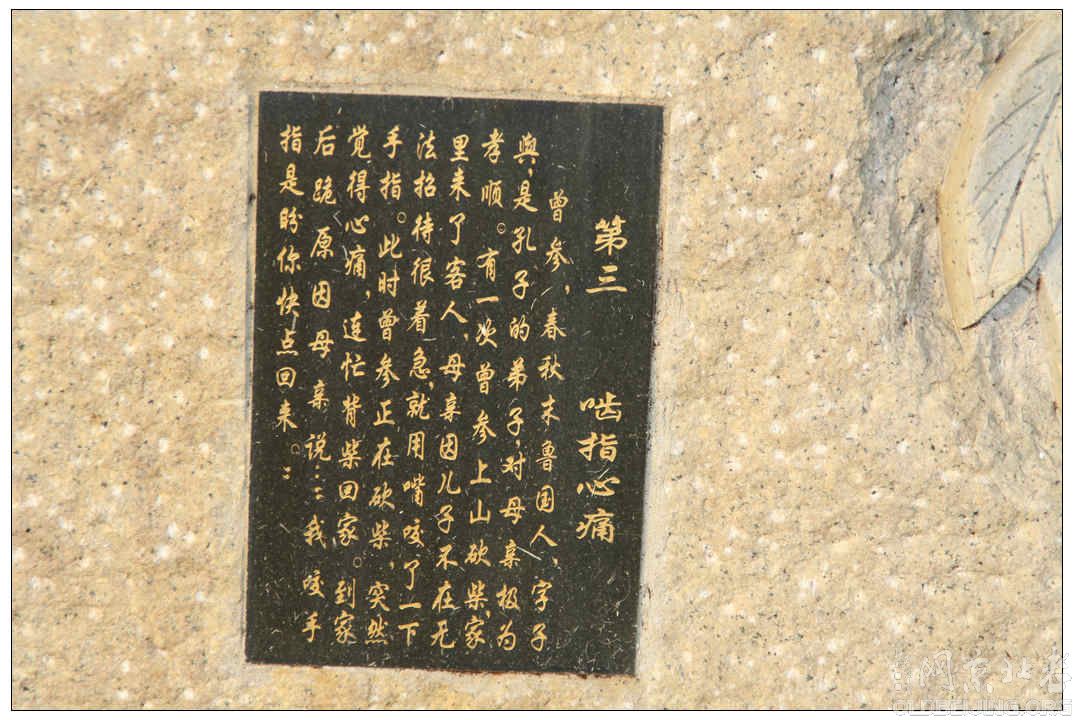 第三 啮指心痛
曾参，春秋末鲁国人，字子
與，是孔子的弟子，对母亲极为
孝顺。有一次曾参上山砍柴，家
里来了客人，母亲因儿子不在无
法招待很着急，就用嘴咬了一下
手指。此时曾参正在砍柴，突然
觉得心痛，连忙背柴回家。到家
后跪原因母亲说：“我咬手
指是盼你快点回来。”
网京北老
OLDBEIJING.ORG